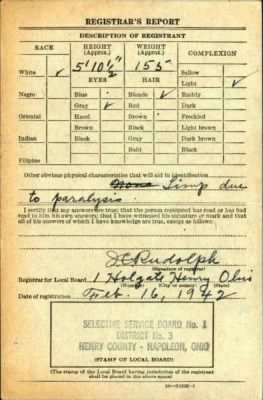 REGISTRAR'S REPORT
DESCRIPTION OF REGISTRANT
RACE HEIGHT (Approx.) WEIGHT (Approx.) COMPLEXION
5' 10½" 155 Sallow
White ✓ EYES HAIR Light ✓
Negro Blue Blonde ✓ Ruddy
Gray ✓ Red Dark
Oriental Hazel Brown Freckled
Brown Black Light brown
Indian Black Gray Dark brown
Bald Black
Filipino
Other obvious physical characteristics that will aid in identification
None Limp due
to paralysis.
I certify that my answers are true; that the person registered has read or has had
read to him his own answers; that I have witnessed his signature or mark and that
all of his answers of which I have knowledge are true, except as follows:
Rudolph
(Signature of registrar)
Registrar for Local Board 1 Holgate Henry Ohio
(Number) (City or county) (State)
Date of registration Feb. 16, 1942
SELECTIVE SERVICE BOARD No. 1
DISTRICT No. 3
HENRY COUNTY - NAPOLEON, OHIO
(STAMP OF LOCAL BOARD)
(The stamp of the Local Board having jurisdiction of the registrant
shall be placed in the above space)